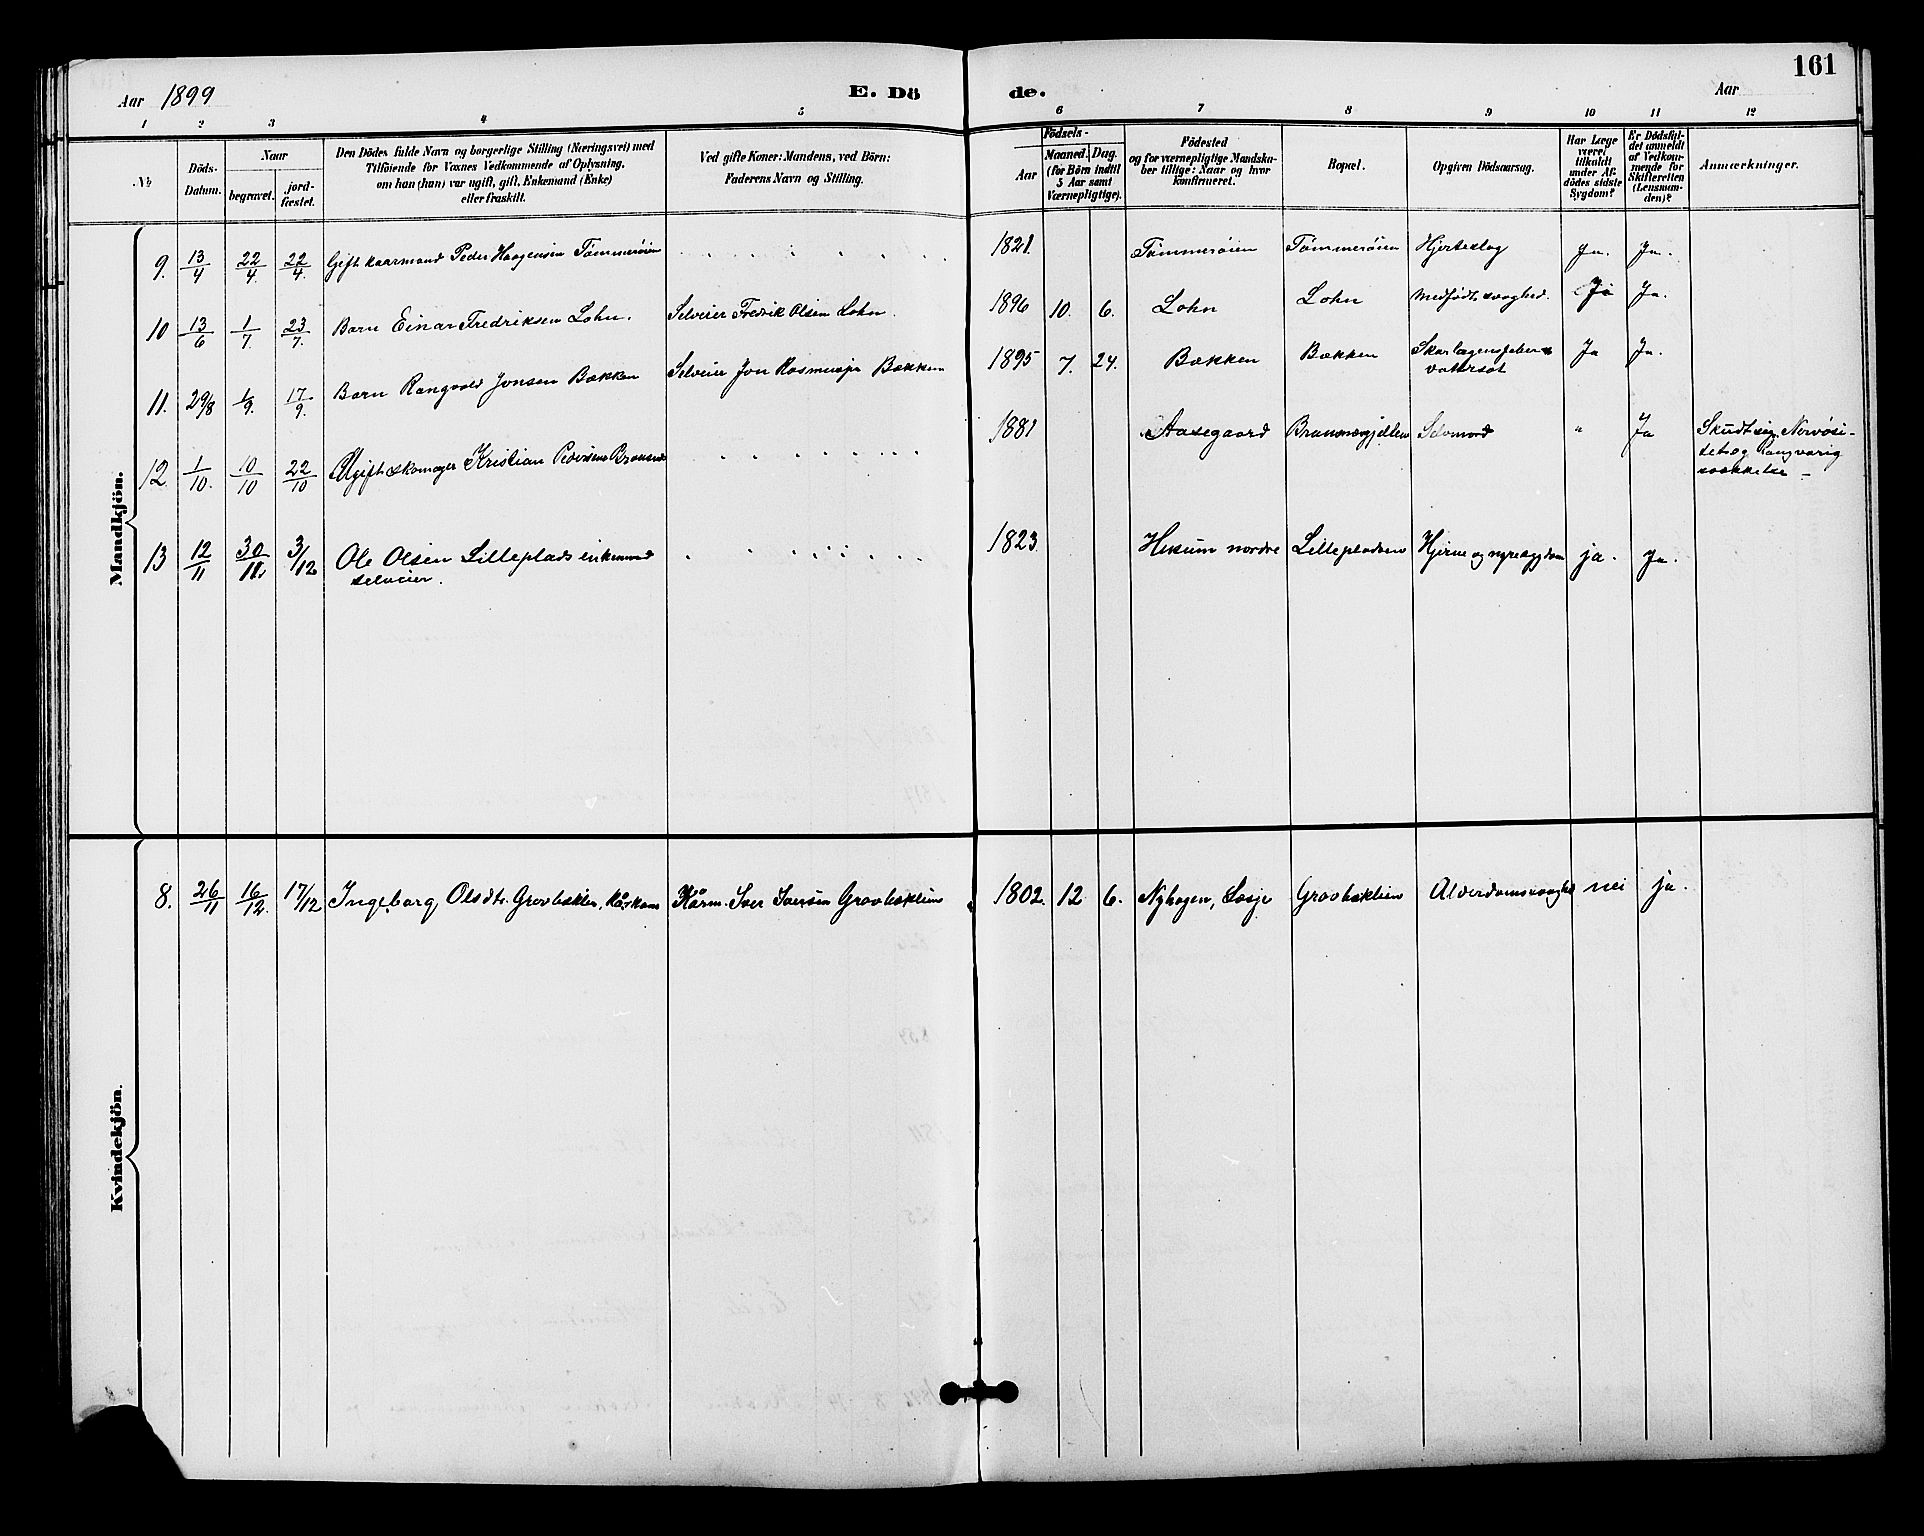 161
Aar 1899 E. Dö de. Aar
1 2 3 4 5 6 7 8 9 10 11 12
No
Döds-
Datum.
Naar
begravet.
jord-
fæstet.
Den Dödes fulde Navn og borgerlige Stilling (Næringsvei) med
Tilföiende for Voxnes Vedkommende af Oplysning,
om han (hun) var ugift, gift, Enkemand (Enke)
eller fraskilt.
Ved gifte Koner: Mandens, ved Börn:
Faderens Navn og Stilling.
Födsels-
Aar
Maaned. Dag.
(for Börn indtil
5 Aar samt
Værnepligtige).
Födested
og for værnepligtige Mandska-
ber tillige: Naar og hvor
konfirmeret.
Bopæl.
Opgiven Dödsaarsag.
Har Læge
været
tilkaldt
under Af-
dödes sidste
Sygdom?
Er Dödsfal-
det anmeldt
af Vedkom-
mende for
Skifteretten
(Lensman-
den)?
Anmærkninger.
Mandkjön.
9. 13/4 22/4. 22/4. Gift kaarmand Peder Haagensen Tømmerøien 1821. Tømmerøien Tømmerøien Hjerteslag Ja. Ja.
10 13/6 1/7. 23/7. Barn Einar Fredriksen Lohn. Selveier Fredrik Olsen Lohn. 1896 10. 6. Lohn Lohn Medfødt svaghed. Ja Ja.
11. 29/8 1/9. 17/9. Barn Rangvald Jonsen Bækken Selveier Jon Bækken 1895 7. 24. Bækken Bækken Skarlagensfeber
vattersot Ja Ja.
12. 1/10. 10/10 22/10 Ugift skomager Kristian Pedersen 1881 Aasegaard Selvmord " Ja Skudt sig, Nervøsi-
tet og langvarig
svækkelse
13 12/11 30/11. 3/12 Ole Olsen Lilleplads enkemand
selveier. 1823. Husum nordre Lillepladsen Hjerne og nyresygdom ja. Ja.
Kvindekjön.
8. 26/11 16/12. 17/12 Ingeborg Olsdtr. Grovbæklien, Kårm. Iver Iversen Grovbæklien 1802. 12 6. Nyhagen, Grovbæklien Alderdomssvaghed nei ja.